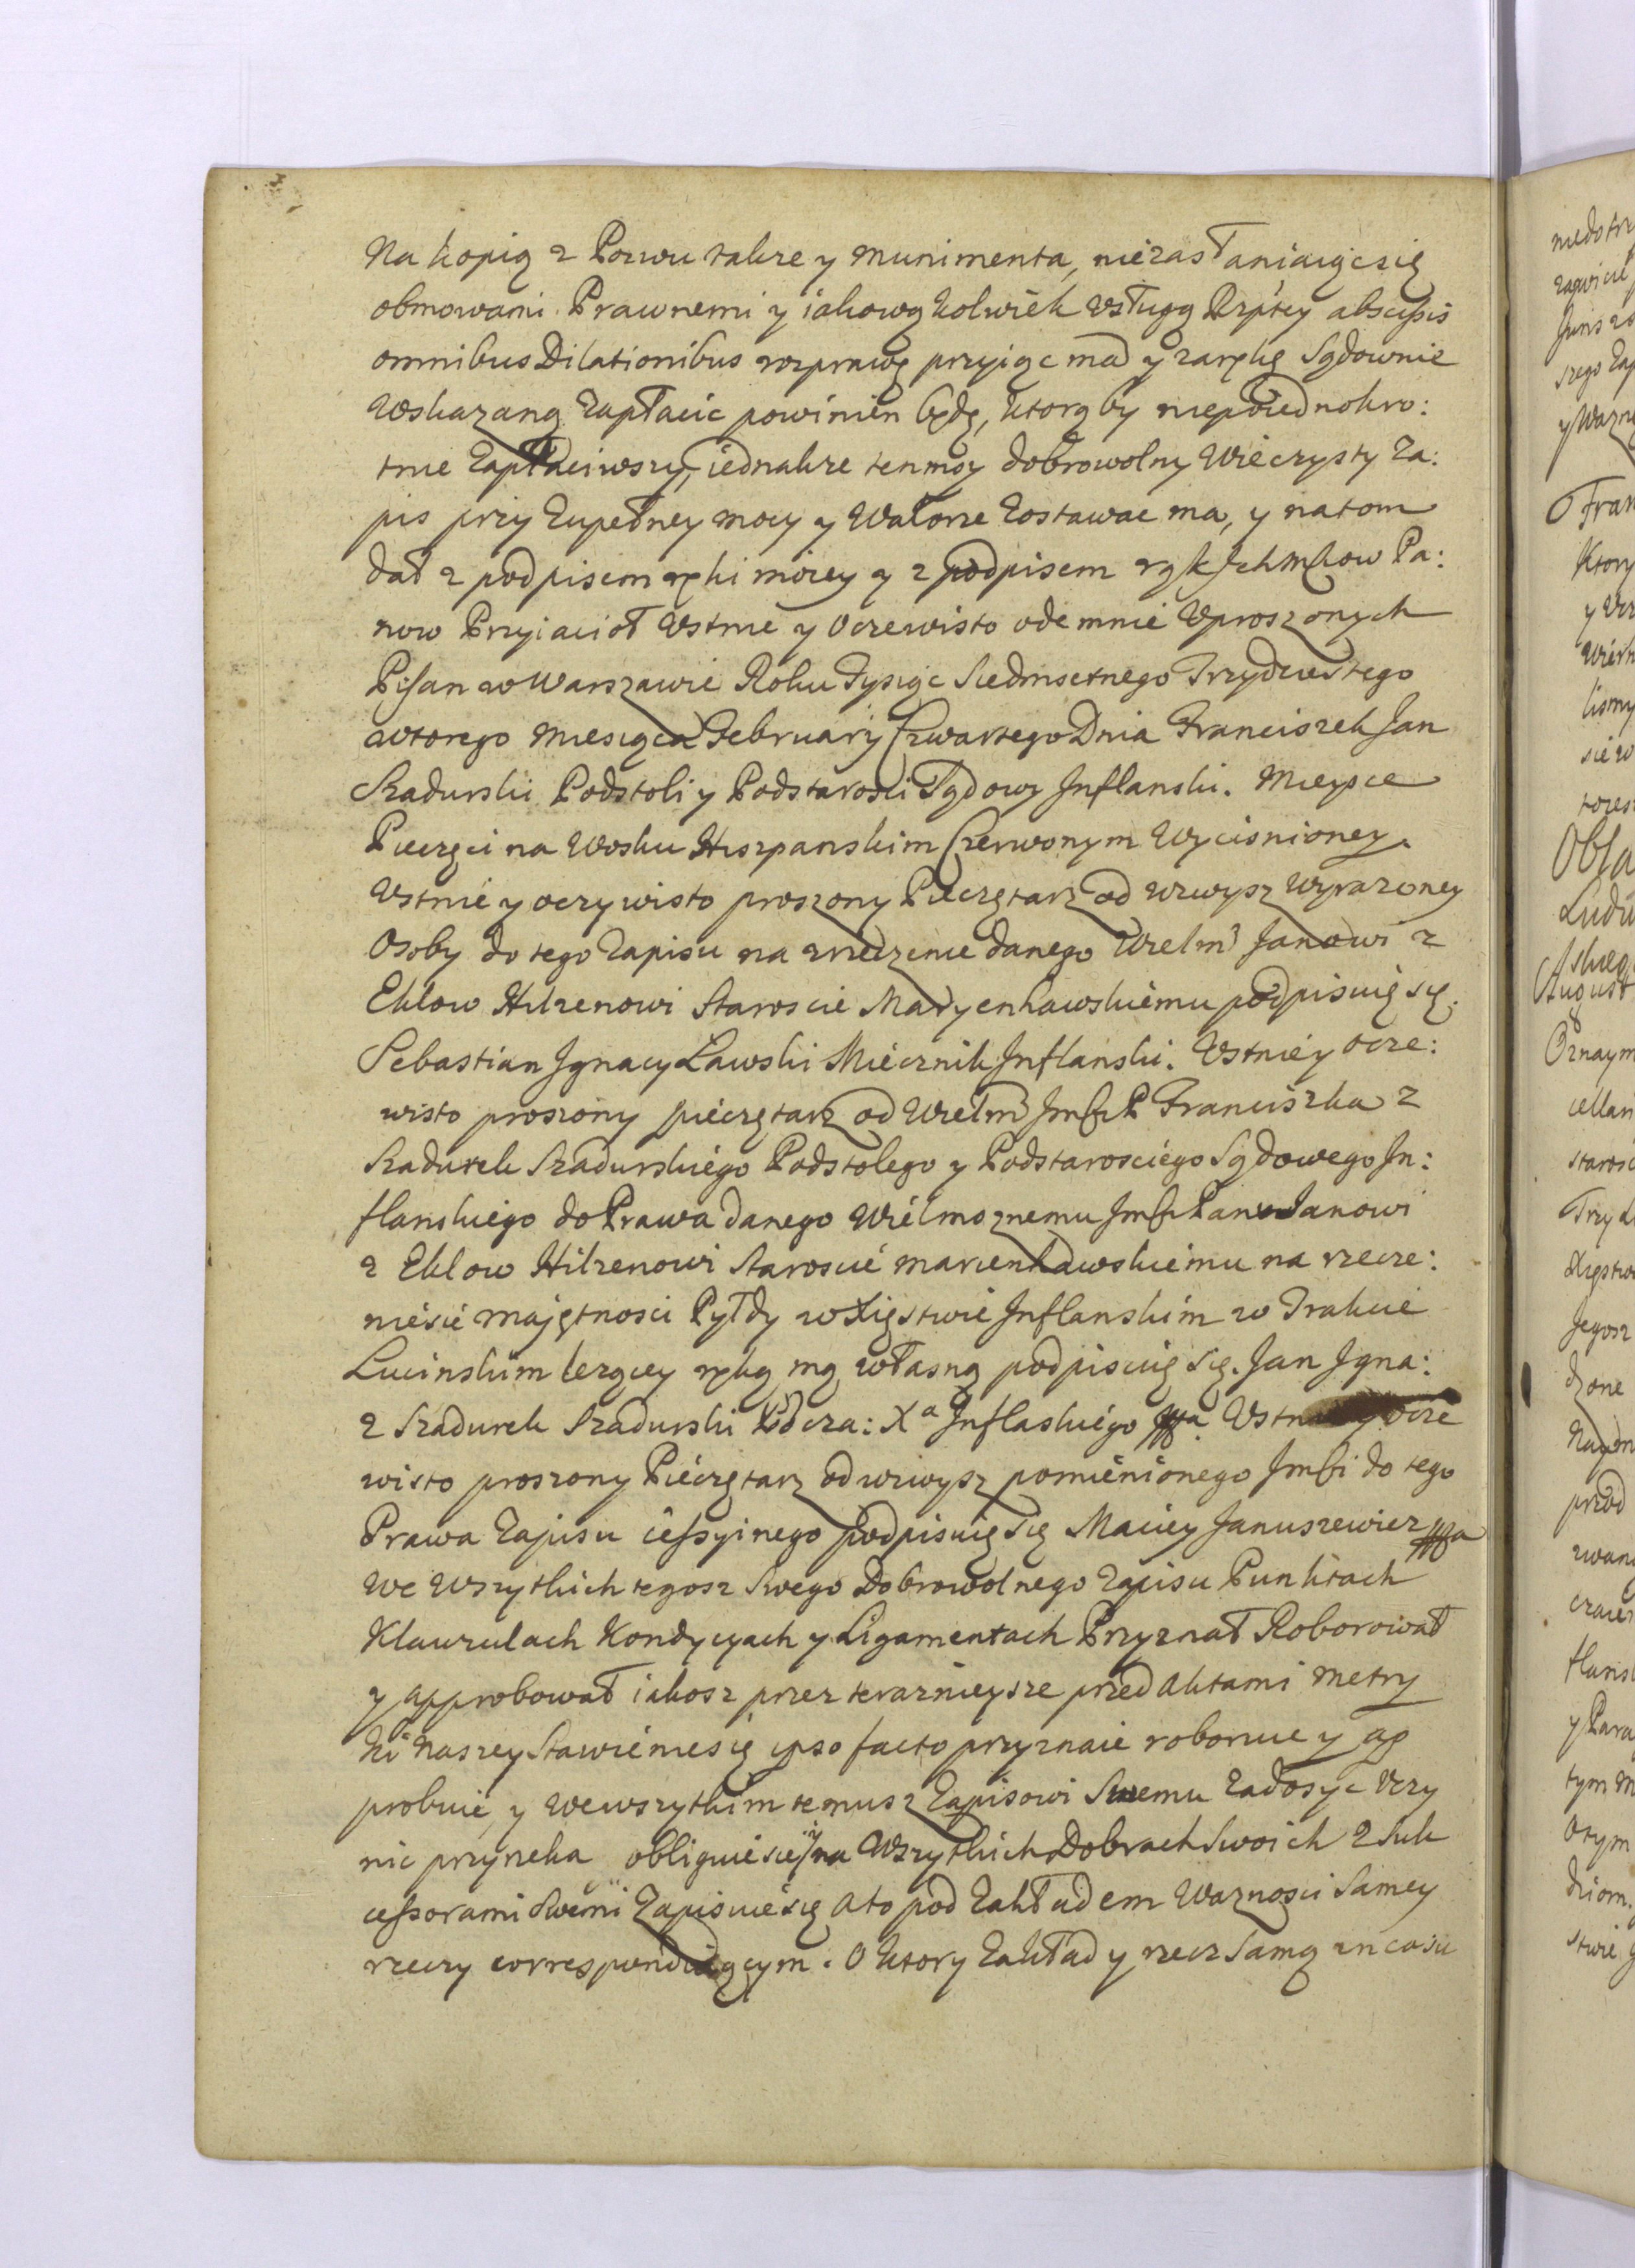 Na kopią z Pozwu takze y munimenta, niezastaniaiąc się
obmowami Prawnemi y iakową kolwiek Usługą Rzptey abscissis
omnibus Dilationibus rozprawę przyiąc ma y zarękę Sądownie
Wskazaną Zapłacic powinien będę, ktorą by niepoiednokro:
tnie Zapłaciwszy, iednakze tenmoy dobrowolny Wieczysty Za:
pis przy Zupełney mocy y Walorze Zostawac ma, y natom
dał z podpisem ręki moiey y z podpisem rąk Ichmciow Pa:
now Przyiacioł Ustnie y Oczewisto odemnie Uproszonych
Pisan w Warszawie Roku Tysiąc Siedmsetnego Trzydziestego
wtorego Miesiąca February Czwartego Dnia Franciszek Jan
Szadurski Podstoli y Podstarosci Sądowy Inflanski. Mieysce
Pieczęci na Wosku Hiszpanskim Czerwonym Wycisnioney.
Ustnie y oczywisto proszony Pieczętarz od wzwysz Wyrazoney
Osoby do tego Zapisu na rzeczenie danego Wielm Janowi z
Eklow Hilzenowi Staroscie Maryenhawskiemu podpisuię się.
Sebastian Ignacy Ławski Miecznik Inflanski. Ustnie y Ocze:
wisto proszony pieczętarz od Wielm Imsci P Franciszka z
Szadurek Szadurskiego Podstolego y Podstarosciego Sądowego In:
flanskiego do Prawa danego Wielmoznemu Imsci Panu Janowi
z Eklow Hilzenowi Staroscie marienhawskiemu na rzecze:
niesie maiętnosci Pyłdy w Xięstwie Inflanskim w Trakcie
Lucinskim lezącey ręką mą własną podpisuię się. Jan Igna:
z Szadurek Szadurski Podcza: Xa Inflaskiego mpa Ustnie y Ocze
wisto proszony Pieczętarz od wzwysz pomienionego Imsci do tego
Prawa Zapisu cessyinego podpisuię się Maciey Januszewicz mpa
We Wszytkich tegosz Swego Dobrowolnego Zapisu Punktach
Klauzulach Kondycyach y Ligamentach Przyznał Roborował
y approbował iakosz przez terazniejsze przed Aktami Metry
ki Naszey Stawieniesię ipso facto przyznaie roboruie y ap
probuie, y wewszytkim temusz Zapisowi Swemu Zadosyc Uczy
nic przyrzeka obliguie się y na Wszytkich Dobrach Swoich z Suk
cessorami Swemi Zapisuie się Ato pod Zakładem Waznosci Samey
rzeczy correspenduiącym. O ktory Zakład y rzecz Samą in casu